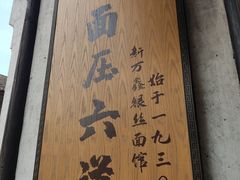 始于一九三〇
新万鑫银丝面馆
面压六洋